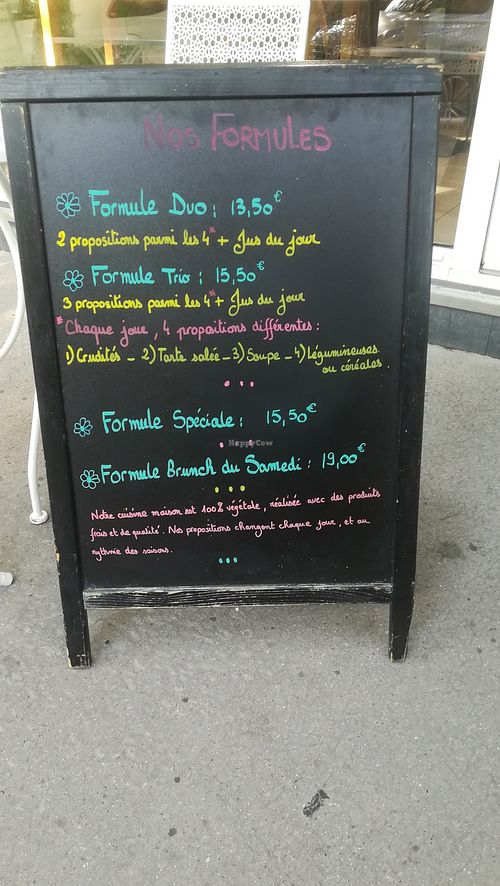 Nos Formules
Formule Duo : 13,50€
2 propositions parmi les 4* + Jus du jour
Formule Trio : 15,50€
3 propositions parmi les 4* + Jus du jour
*Chaque jour, 4 propositions différentes :
1) Crudités - 2) Tarte salée - 3) Soupe - 4) Légumineuses
ou céréales.
...
Formule Spéciale : 15,50€
HappyCow
Formule Brunch du Samedi : 19,00€
...
Notre cuisine maison est 100% végétale, réalisée avec des produits
frais et de qualité. Nos propositions changent chaque jour, et au
rythme des saisons.
...